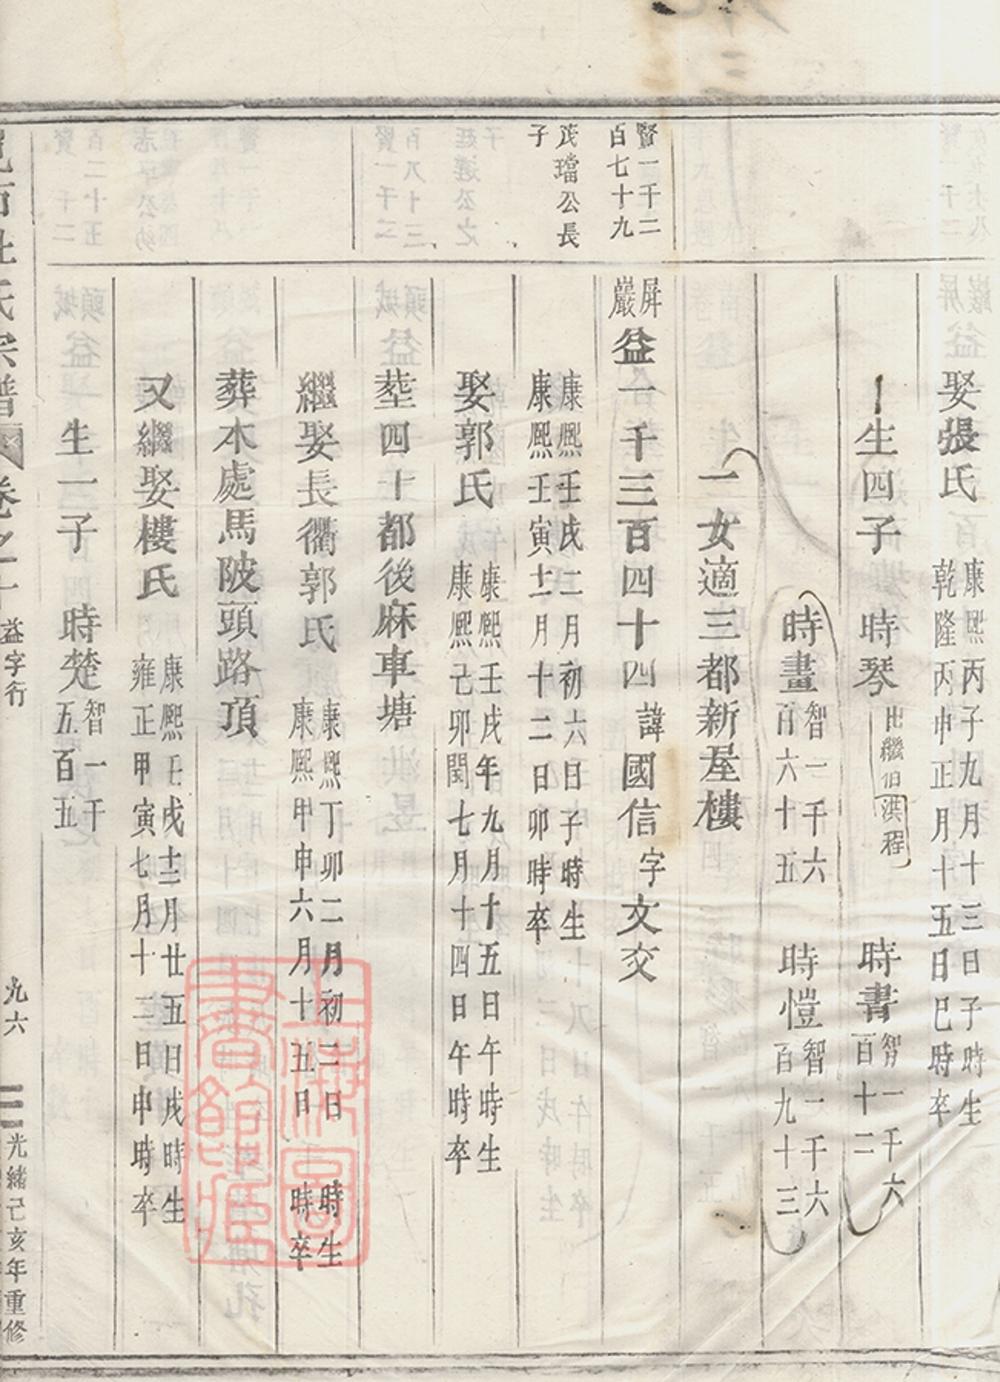 娶張氏
康熙丙子九月十三日子時生
乾隆丙申正月十五日巳時卒
生四子
時琴
出繼伯淇程
時書
智一千六
百十二
時畫
智一千六
百六十五
時愷
智一千六
百九十三
一女適三都新屋樓
賢一千二
百七十九
茂璫公長
子
屏
巖
益一千三百四十四
諱國信
字文交
康熙壬戌二月初六日子時生
康熙壬寅十一月十二日卯時卒
娶郭氏
康熙壬戌年九月十五日午時生
康熙己卯閏七月十四日午時卒
塟四十都後麻車塘
繼娶長衢郭氏
康熙丁卯二月初二日
時生
康熙甲申六月十五日
時卒
葬本處馬陂頭路頂
又繼娶樓氏
康熙壬戌十二月廿五日戌時生
雍正甲寅七月十二日申時卒
生一子
時楚
智一千
五百五
杜氏宗譜
卷之十
益字行
九六
光緒己亥年重修
上海圖
書館藏